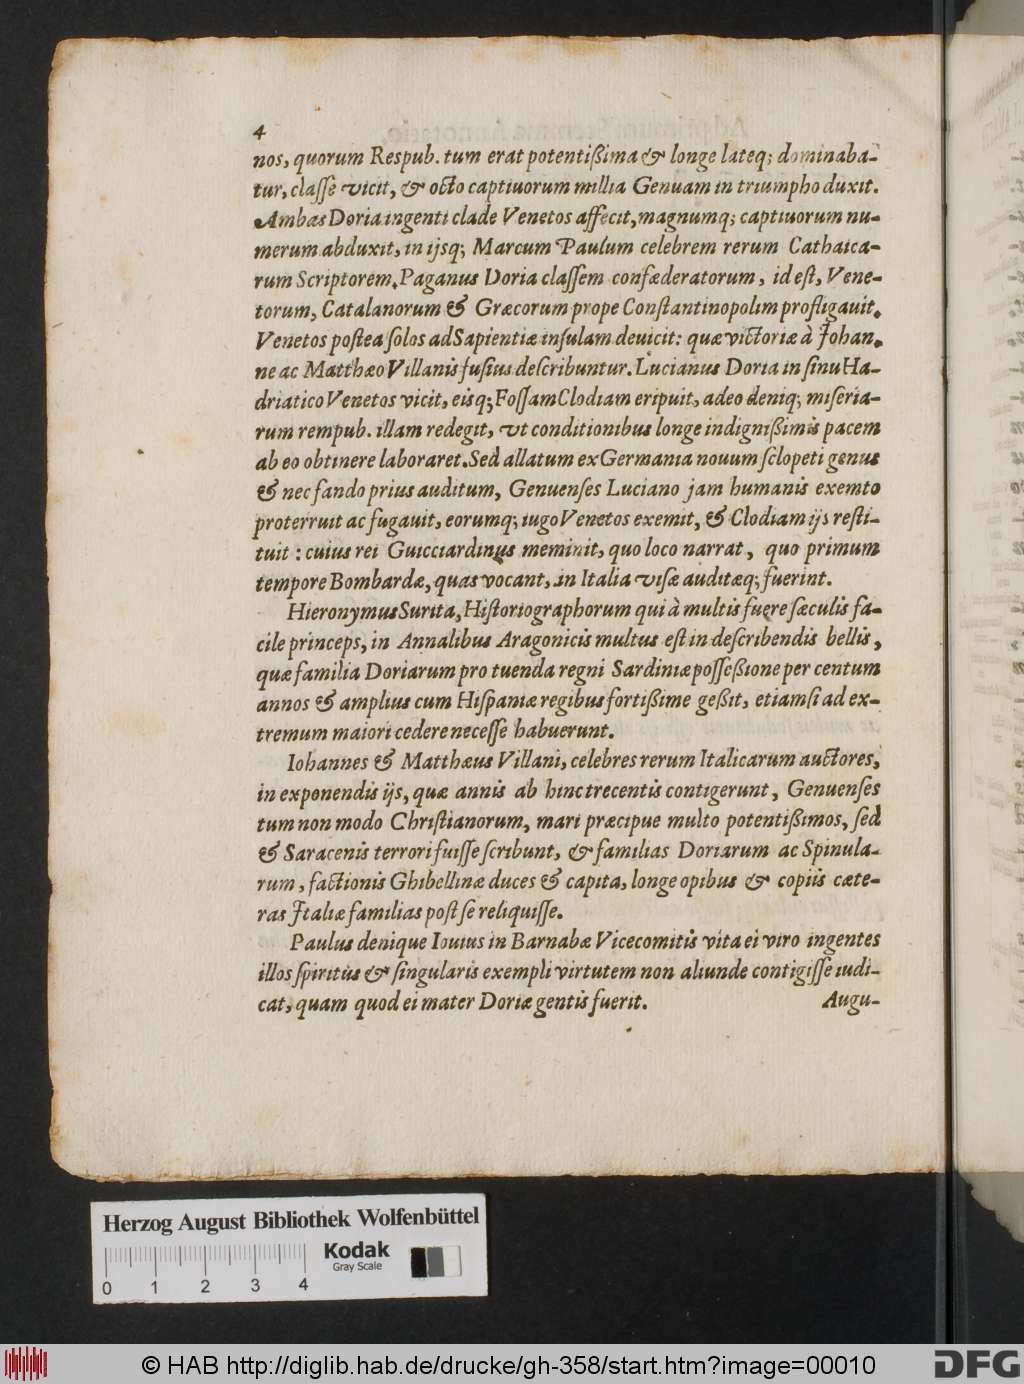 4
nos, quorum Respub. tum erat potentißima & longe lateq; dominaba-
tur, classe vicit, & octo captiuorum millia Genuam in triumpho duxit.
Ambas Doria ingenti clade Venetos affecit, magnumq; captiuorum nu-
merum abduxit, in ijsq; Marcum Paulum celebrem rerum Cathaica-
rum Scriptorem. Paganus Doria classem confæderatorum, id est, Vene-
torum, Catalanorum & Græcorum prope Constantinopolim profligauit.
Venetos postea solos ad Sapientiæ insulam deuicit: quæ victoriæ à Johan-
ne ac Matthæo Villanis fusius describuntur. Lucianus Doria in sinu Ha-
driatico Venetos vicit, eisq; Fossam Clodiam eripuit, adeo deniq; miseria-
rum rempub. illam redegit, vt conditionibus longe indignißimis pacem
ab eo obtinere laboraret. Sed allatum ex Germania nouum sclopeti genus
& nec fando prius auditum, Genuenses Luciano jam humanis exemto
proterruit ac fugauit, eorumq; iugo Venetos exemit, & Clodiam ijs resti-
tuit: cuius rei Guicciardinus meminit, quo loco narrat, quo primum
tempore Bombardæ, quas vocant, in Italia visæ auditæq; fuerint.
Hieronymus Surita, Historiographorum qui à multis fuere sæculis fa-
cile princeps, in Annalibus Aragonicis multus est in describendis bellis,
quæ familia Doriarum pro tuenda regni Sardiniæ posseßione per centum
annos & amplius cum Hispaniæ regibus fortißime geßit, etiamsi ad ex-
tremum maiori cedere necesse habuerunt.
Iohannes & Matthæus Villani, celebres rerum Italicarum auctores,
in exponendis ijs, quæ annis ab hinc trecentis contigerunt, Genuenses
tum non modo Christianorum, mari præcipue multo potentißimos, sed
& Saracenis terrori fuisse scribunt, & familias Doriarum ac Spinula-
rum, factionis Ghibellinæ duces & capita, longe opibus & copiis cæte-
ras Jtaliæ familias post se reliquisse.
Paulus denique Iouius in Barnabæ Vicecomitis vita ei viro ingentes
illos spiritus & singularis exempli virtutem non aliunde contigisse iudi-
cat, quam quod ei mater Doriæ gentis fuerit. Augu-
Herzog August Bibliothek Wolfenbüttel
Kodak
Gray Scale
0 1 2 3 4
© HAB http://diglib.hab.de/drucke/gh-358/start.htm?image=00010
DFG